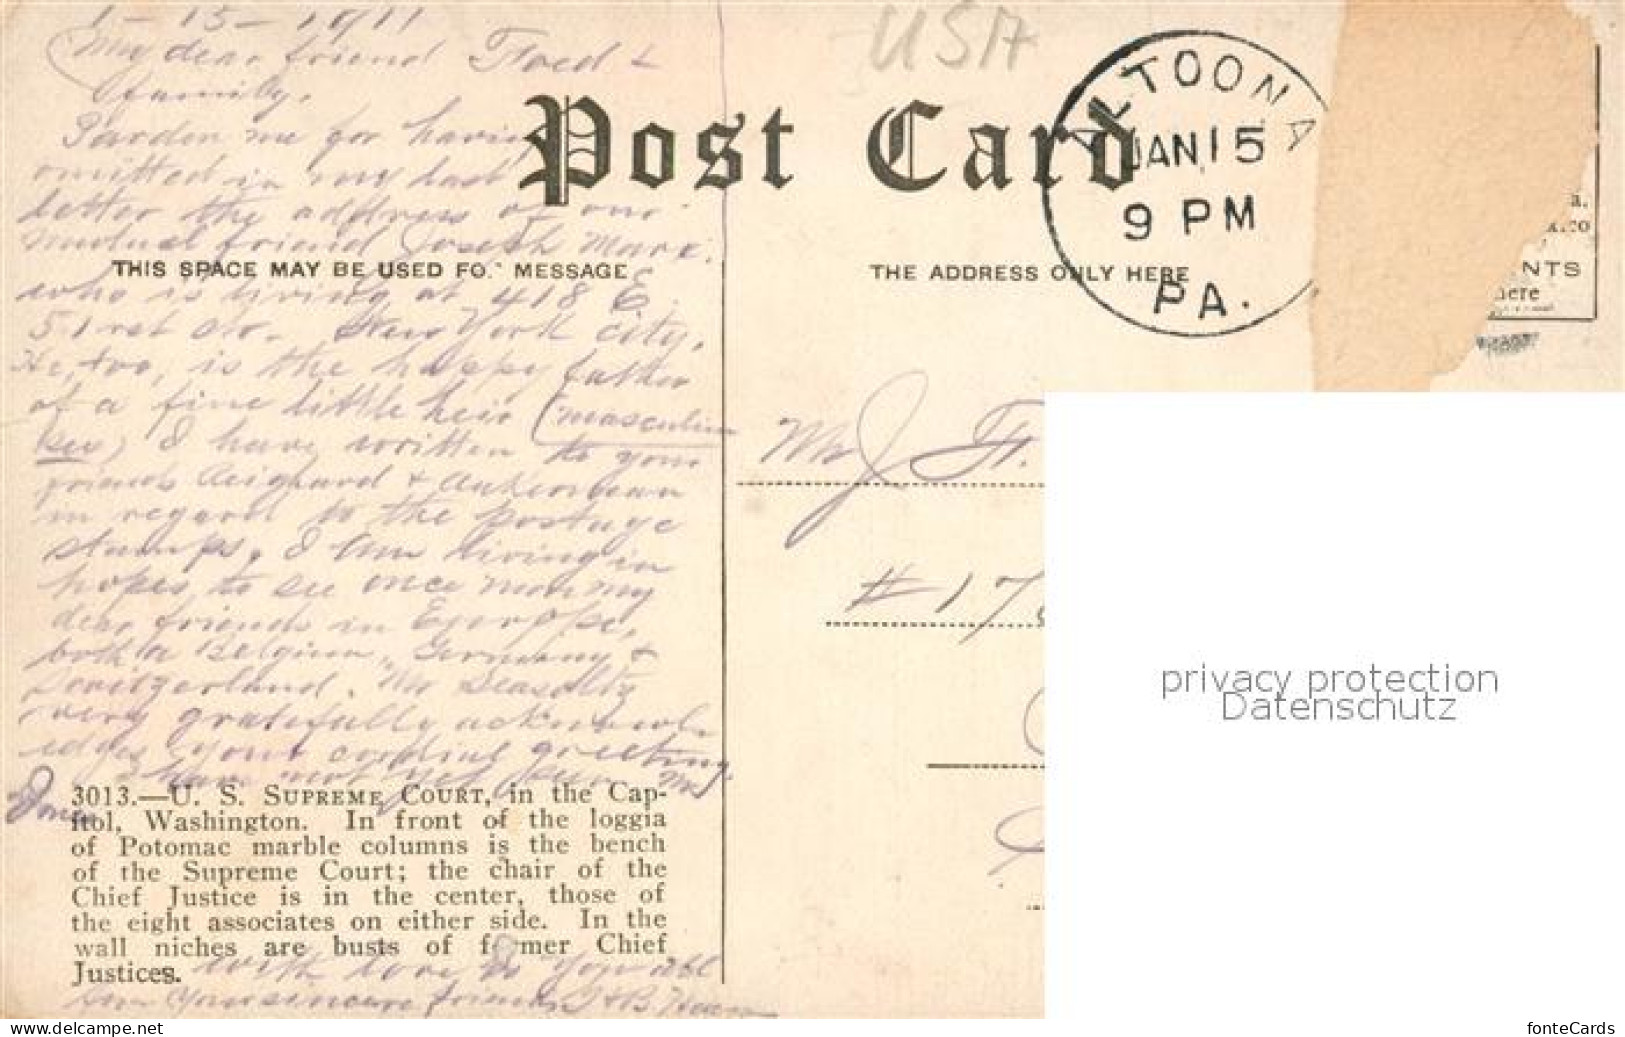 1-15-1911
My dear friend Fred &
family,
Pardon me for having
omitted in my last
letter the address of our
mutual friend Joseph Marx.
who is living at 418 E.
51 rst str. New York city.
He, too, is the happy father
of a fine little heir (masculine
sex) I have written to your
friends &
in regard to the postage
stamps. I am living in
hopes to see once more my
dear friends in Europe,
both in Belgium, Germany &
Switzerland. Mr
very gratefully acknowl-
edges your cordial greeting.
I have not yet seen Mr
Jones
With love to you all
Your sincere friends
USA
Post Card
THIS SPACE MAY BE USED FO. MESSAGE
THE ADDRESS ONLY HERE
ALTOONA
JAN 15
9 PM
PA.
a.
NTS
here
Mr J. F.
# 17
privacy protection
Datenschutz
3013.—U. S. SUPREME COURT, in the Cap-
itol, Washington. In front of the loggia
of Potomac marble columns is the bench
of the Supreme Court; the chair of the
Chief Justice is in the center, those of
the eight associates on either side. In the
wall niches are busts of former Chief
Justices.
www.delcampe.net
fonteCards